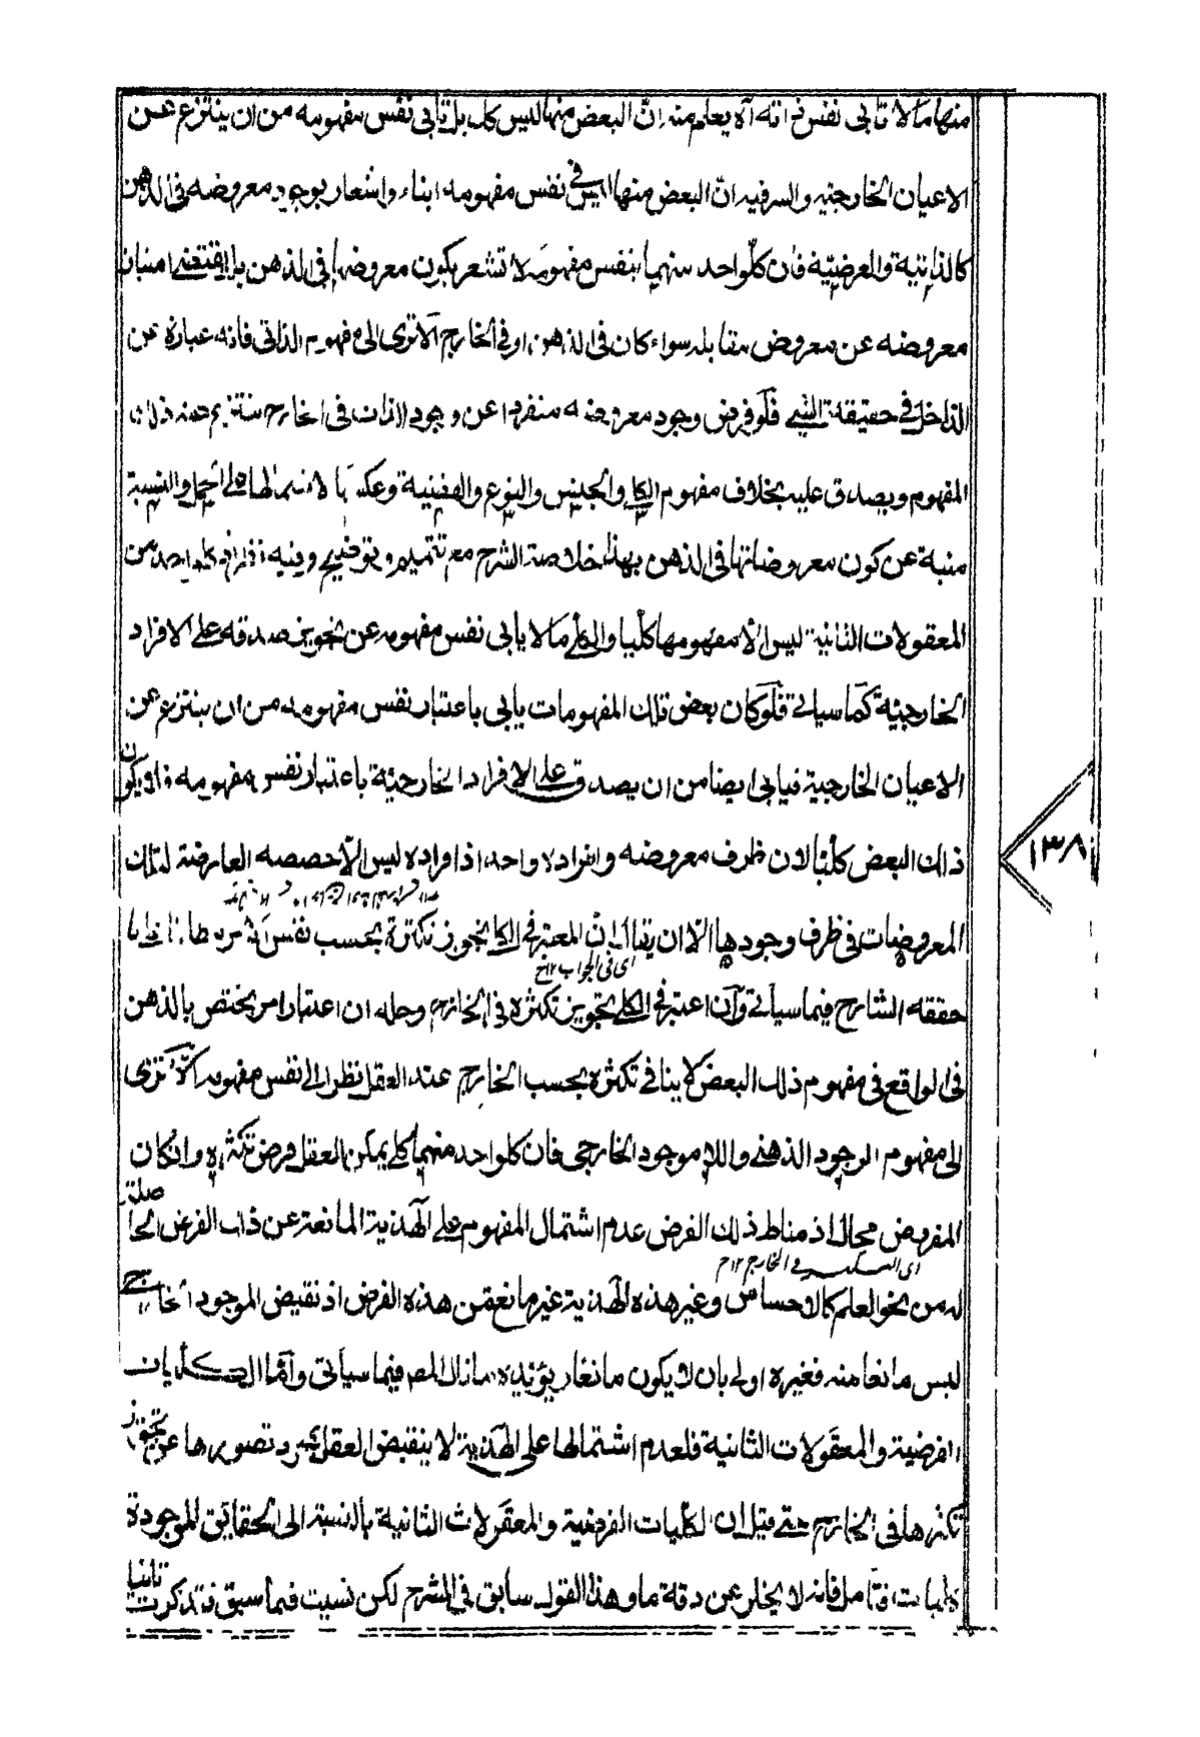 منها ما لا تأبى نفس ذاته آه يعلم منه انّ البعض منها ليس كك بل تأبى نفس مفهومه من ان ينتزع عن
الاعيان الخارجية والسر فيه انّ البعض منها ليس فى نفس مفهومه ابناء واشعار بوجود معروضه فى الذهن
كالذاتية والعرضيّة فان كلّ واحد منهما بنفس مفهومه لا تشعر بكون معروضها فى الذهن بل يقتضى امتياز
معروضه عن معروض مقابله سواء كان فى الذهن او فى الخارج ألا ترى الى مفهوم الذاتى فانه عبارة عن
الداخل فى حقيقة الشئ فلو فرض وجود معروضه منفردا عن وجود الذات فى الخارج ينتزع عنه ذلك
المفهوم ويصدق عليه بخلاف مفهوم الكلى والجنس والنوع والقضية وعكسها لاشتمالها على الحمل والنسبة
منبئة عن كون معروضاتها فى الذهن هذا خلاصة الشرح مع تتميم وتوضيح وفيه ان كل واحد من
المعقولات الثانية ليس الا مفهومها كليا والكلى ما لا يأبى نفس مفهومه عن تجويز صدقه على الافراد
الخارجية كما سيأتى فلو كان بعض تلك المفهومات يأبى باعتبار نفس مفهومه من ان ينتزع عن
الاعيان الخارجية فيأبى ايضا من ان يصدق على الافراد الخارجية باعتبار نفس مفهومه فلا يكون
ذلك البعض كليا لان ظرف معروضه وافراده واحد اذ افراده ليس الّا حصصه العارضة لتلك
المعروضات فى ظرف وجودها الّا ان يقال ان المعتبر فى الكلى تجويز تكثره بحسب نفس
اى فى الجواب ١٢ ح
حققه الشارح فيما سيأتى وان اعتبر فى الكلى تجويز تكثره فى الخارج وحله ان اعتبار امر يختص بالذهن
فى الواقع فى مفهوم ذلك البعض لا ينافى تكثره بحسب الخارج عند العقل نظرا الى نفس مفهومه ألا ترى
الى مفهوم الوجود الذهنى واللاموجود الخارجى فان كل واحد منهما كلى يمكن للعقل فرض تكثره وان كان
المفروض محالا اذ مناط ذلك الفرض عدم اشتمال المفهوم على الهذية المانعة عن ذلك الفرض الحاصلة
اى التكثر فى الخارج ١٢ ح
له من نحو العلم كالاحساس وغير هذه الهذية غير مانعة من هذه الفرض اذ نقيض الموجود الخارجى
ليس مانعا منه فغيره اولى بان لا يكون مانعا ويؤيده ما ذكر المص فيما سيأتى وامّا الكليات
الفرضية والمعقولات الثانية فلعدم اشتمالها على الهذية لا ينقبض العقل بمجرد تصورها عن تجويز
تكثرها فى الخارج حتى قيل ان الكليات الفرضية والمعقولات الثانية بالنسبة الى الحقائق الموجودة
كليات فتأمل فانه لا يخلو عن دقة ما وهذا القول سابق فى الشرح لكن نسيت فيما سبق فتذكرت ثانيا
١٣٨